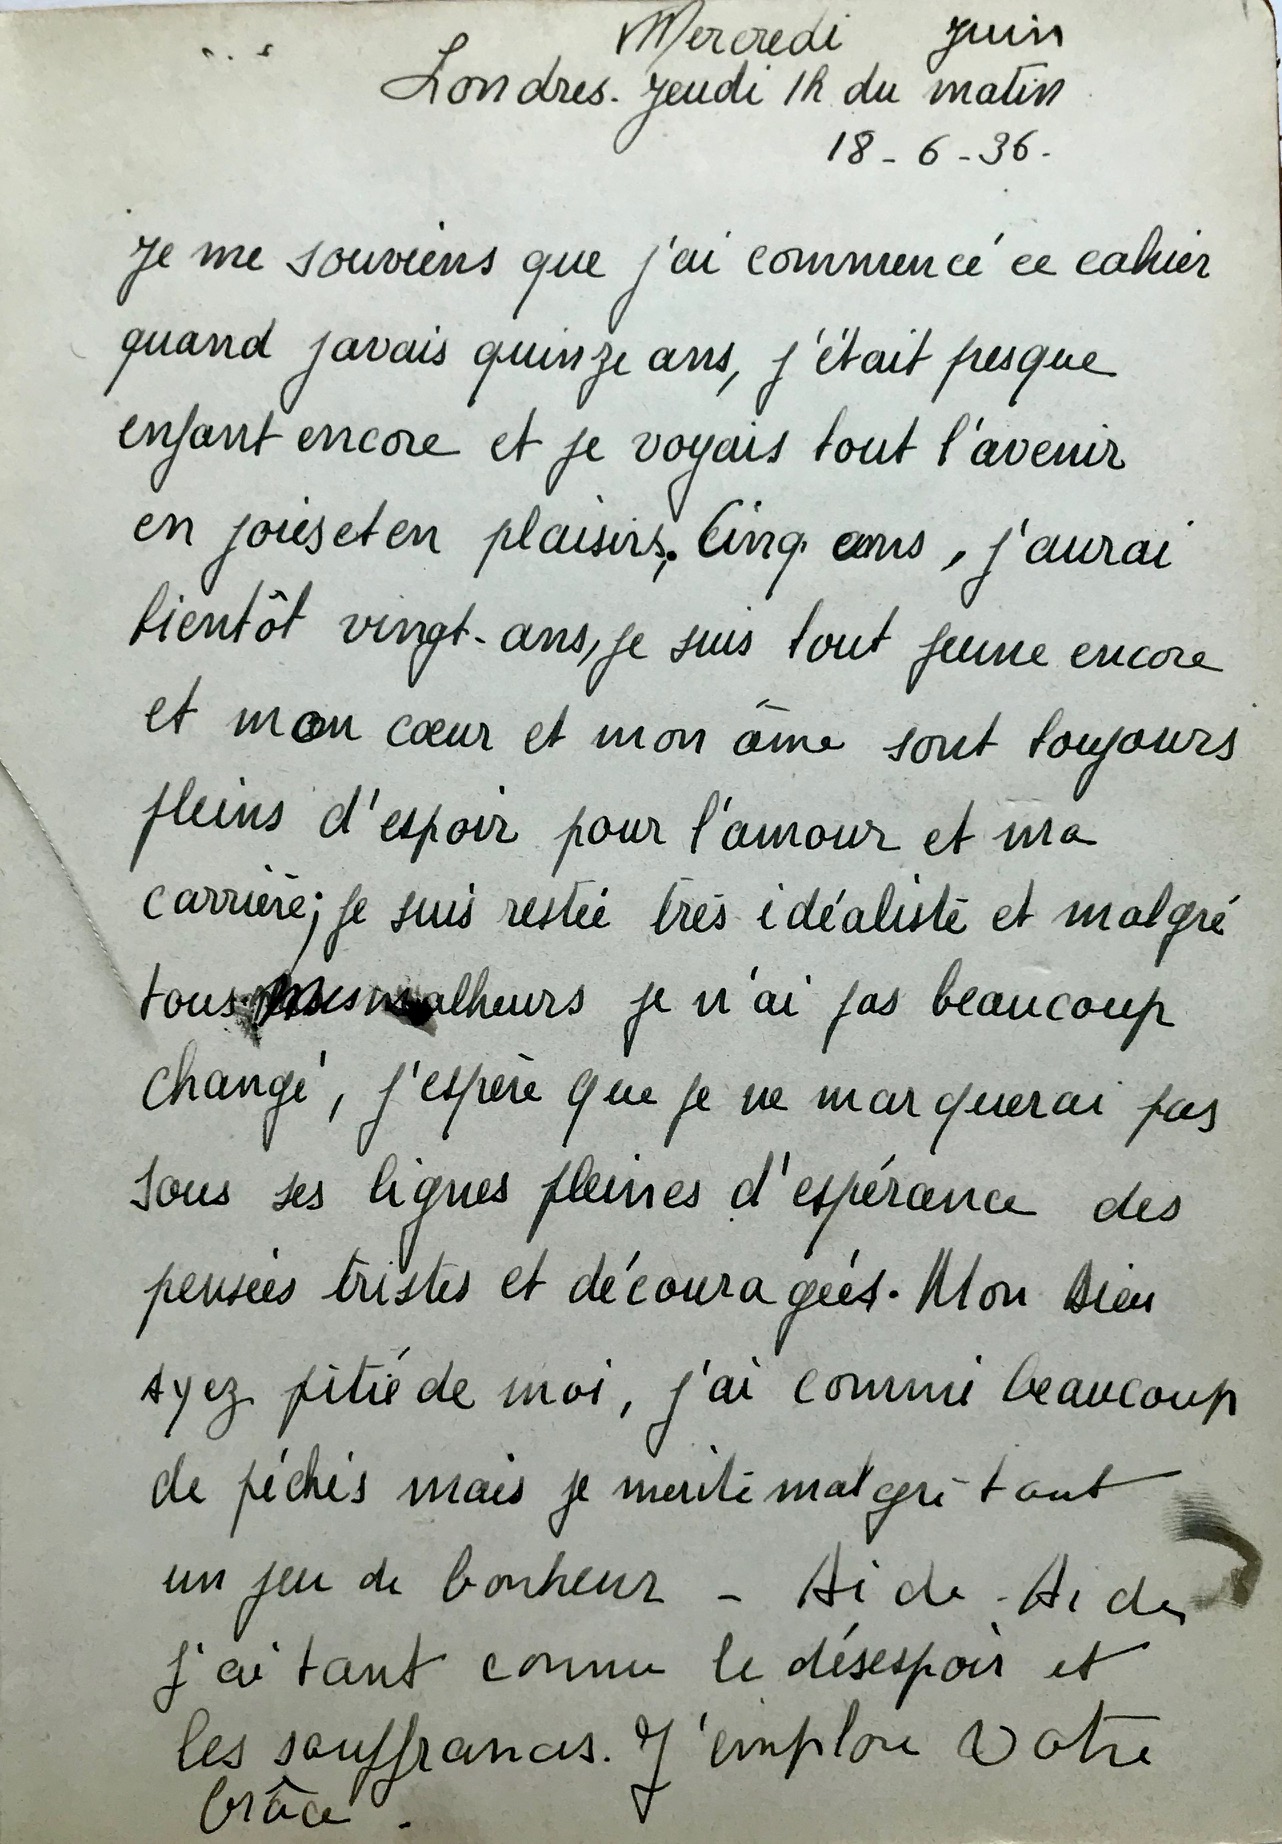 Mercredi juin
Londres. Jeudi 1h du matin
18-6-36.
Je me souviens que j'ai commencé ce cahier
quand javais quinze ans, j'était presque
enfant encore et je voyais tout l'avenir
en joies et en plaisirs. Cinq ans, j'aurai
bientôt vingt-ans, je suis tout jeune encore
et mon cœur et mon âme sont toujours
pleins d'espoir pour l'amour et ma
carrière; je suis restée très idéaliste et malgré
tous mes malheurs je n'ai pas beaucoup
changé, j'espère que je ne marquerai pas
sous ses lignes pleines d'espérance des
pensées tristes et découragées. Mon Dieu
Ayez pitié de moi, j'ai commi beaucoup
de péchés mais je mérite malgré tout
un peu de bonheur - Aide - Aide
j'ai tant connu le désespoir et
les souffrances. J'emplore Votre
Grâce.